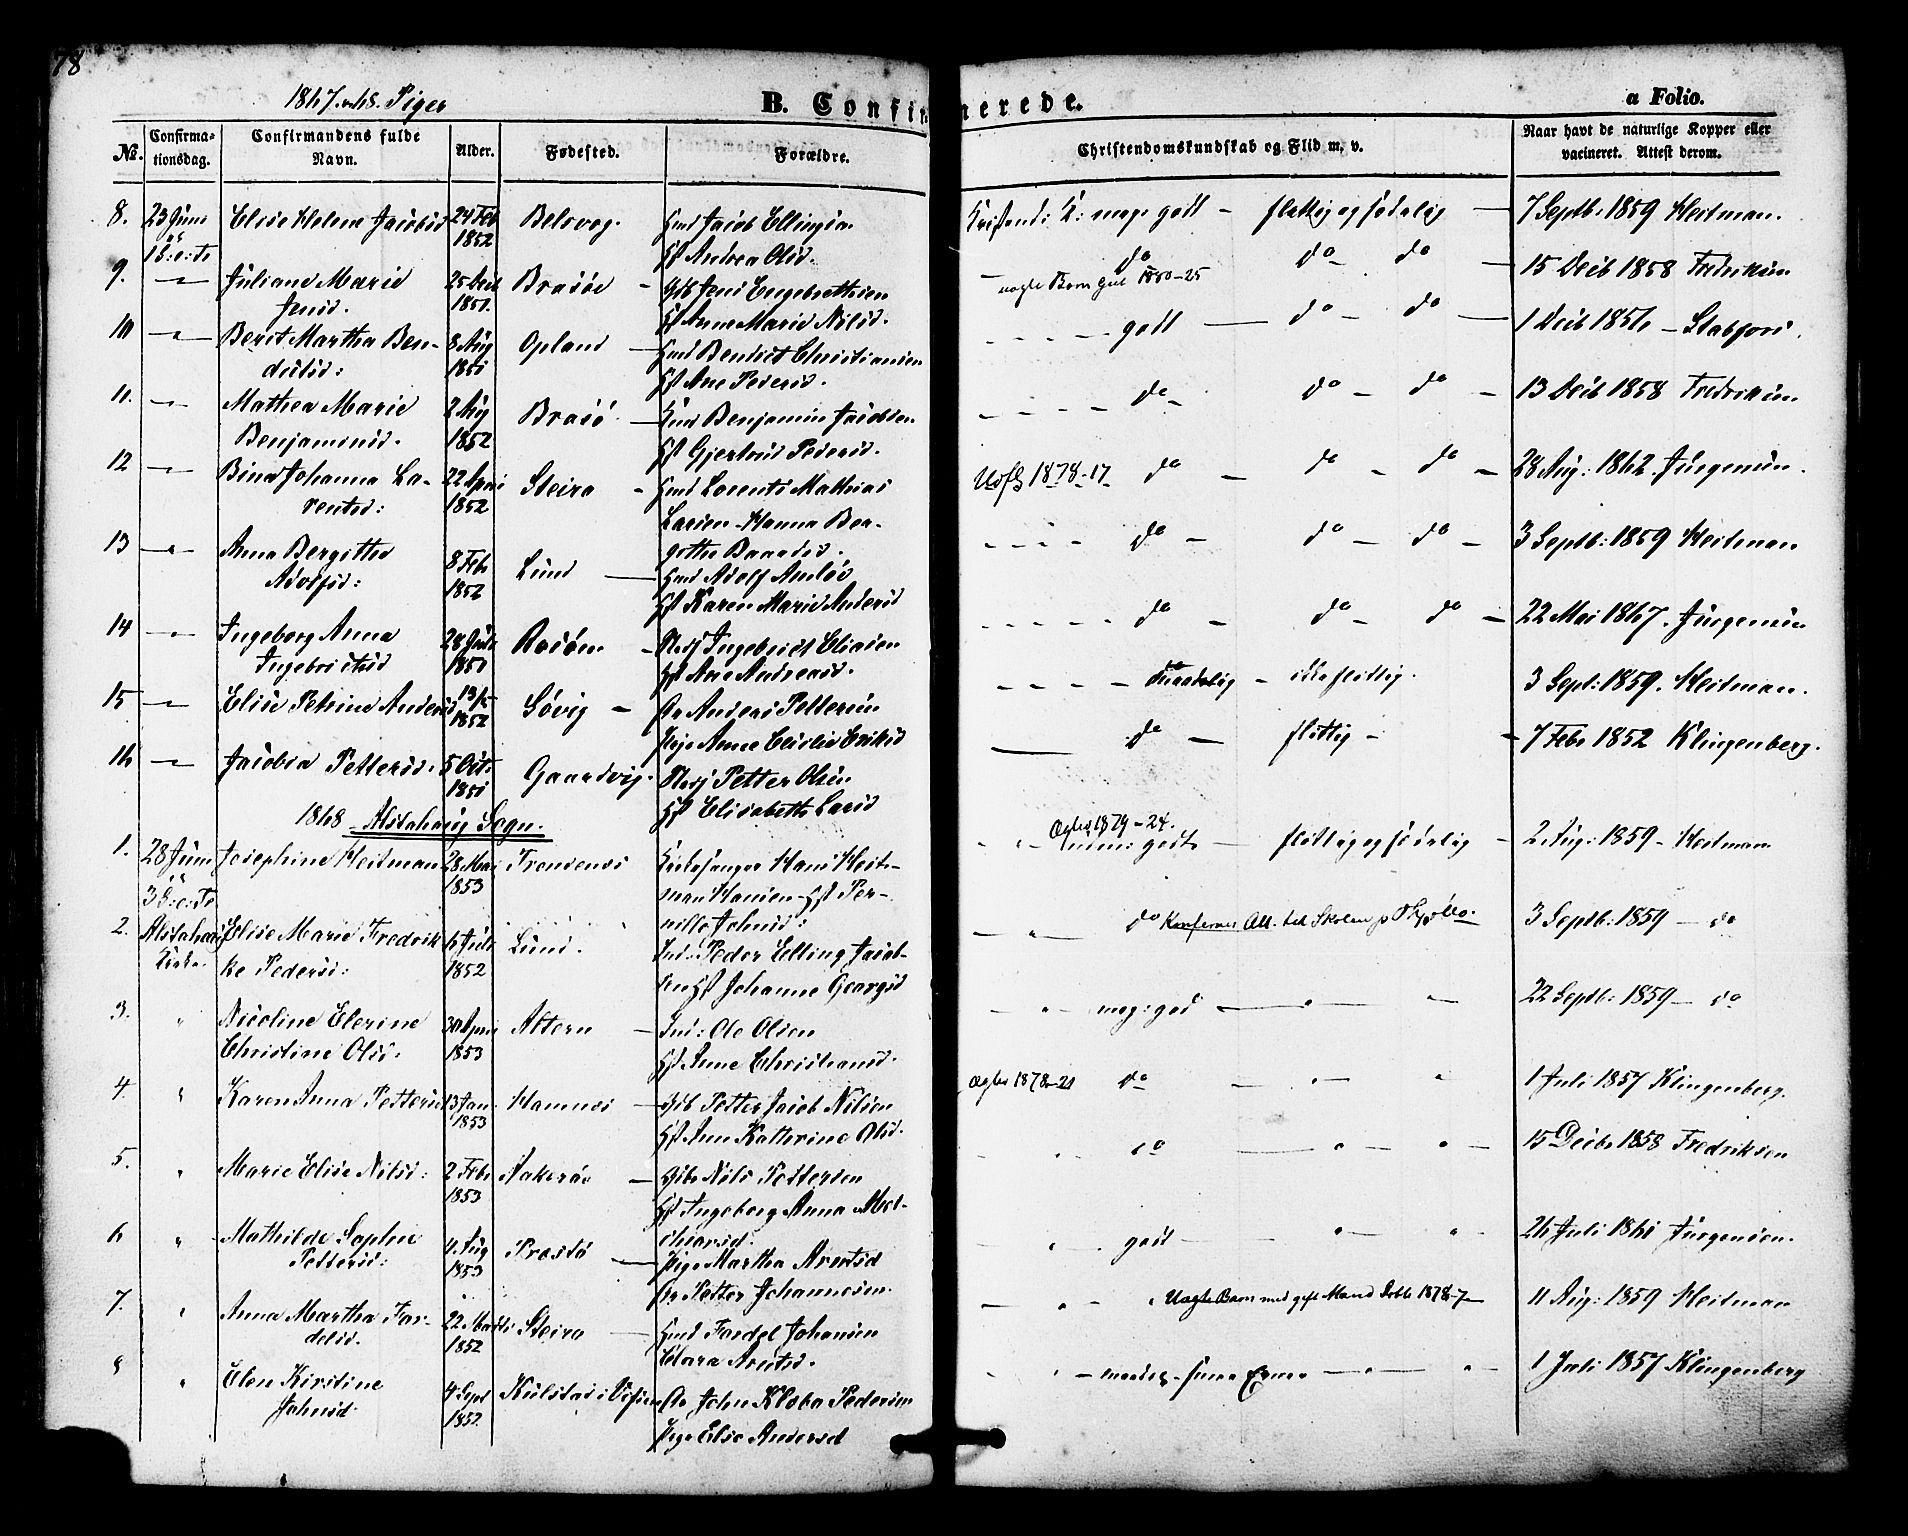 78
1867 og 68. Piger
B. Confirmerede.
a Folio.
No. Confirmationsdag. Confirmandens fulde Navn. Alder. Fødested. Forældre. Christendomskundskab og Flid m. v. Naar havt de naturlige Kopper eller vacineret. Attest derom.
8. 23 Juni Elise Helena Jacobsd 24 Feb 1852 Belsvog. Hmd Jacob Ellingsen
Hst Andrea Olsd. meg: godt - flittig og sædelig - 7 Septb: 1859 Heitman.
9. Juliane Marie Jensd. 1851. Brasøe - Gdb Jens Engebrethsen
Hst Anne Marie Nilsd. do do do 15 Decb 1858 Fredriksen
uægte Barn
10 Berit Martha Bendiktsd: 8 Aug 1851 Opland - Hmd Bendict Christiansen
Hst Ane Pedersd. godt - do - do - 1 Decb 1856
11. Mathea Marie Benjaminsd. 2 Aug 1852 Brasø - Hmd Benjamin Jacobsen
Hst Gjertrud Pedersd. do - do - do - 13 Decb 1858 Fredriksen
12 Bina Johanna Larentsd: 22 April 1852 Steiro - Hmd Lorents Mathias
Larsen - Hanna Bergothe
Udfl 1878-17 do - do - do - 28 Aug: 1862. Jürgensen.
13 Anna Bergitthe Adolfsd: 8 Feb 1852 Lund - Hmd Adolf
Hst Karen Marie Andersd do - do - do - 3 Septb: 1859 Heitman
14 Ingeborg Anna Ingebrictsd 28 Juli 1851 Rosøen - Ingebrict Eliasen
Hst Ane Andreasd. do - do - do - 22 Mai 1867. Jürgensen
15 Elise Petrine Andersd 13/5 1852 Søvig - Anders Pettersen
Pige Anne Eriksd maadelig - ikke flittig. 3 Sept: 1859. Heitman.
16 Jacobea Pettersd. 5 Octb 1851 Gaardvig. Petter Olsen
Hst Elisabeth Larsd do - flittig - 7 Feb 1852 Klingenberg.
1868 Alstahaug Sogn.
1. 28 Juni Josephine Heitman 28 Mai 1853 Kirkesanger Hans Heitman
Hansen - Hst Pernille Johnsd: Ægtev 1879-24.
godt - flittig og sædelig - 2 Aug: 1859 - Heitman
2. Alstahaug Kirke. Elise Marie Fredrikke Pedersd: 6 Juli 1852 Lund. Ind: Peder Elling Jacobsen
Hst Johanne Georgsd do til Skolen 3 Septb: 1859 - do
3. Nicoline Elerine Christine Olsd. 30 April 1853 Altern - Ind: Ole Olsen
Hst Anne Christiansd. meg: god - 22 Septb: 1859 - do
4. Karen Anna Pettersd 13 Jan. 1853 Hamnes - Gdb Petter Jacob Nilsen
Hst Ane Katherine Olsd. Ægtev 1878-21 do - 1 Juli 1857 Klingenberg.
5. Marie Elise Nilsd: 2 Feb 1853 Aakerøe - Gdb Nils Pettersen
Hst Ingeborg Anna Melchiorsd: do - 15 Decb 1858 Fredriksen
6 Mathilde Sophie Pettersd: 4 Aug 1853 Præstø - Pige Martha Arentsd
Petter Johannesen. godt - 26 Juli 1861 Jürgensen.
7. Anna Martha Fordelsd. 22 Marts 1852 Steiro - Hmd Fordel Johansen
Clara Arntsd. Uægte Barn med gift Mand Dobte 1878-7 11 Aug: 1859 Heitman
8 Elen Kirstine Johnsd. 4 Sept 1852 Kulstad i Vefsen John Klæbo Pedersen
Pige Else Andersd 1 Juli 1857 Klingenberg